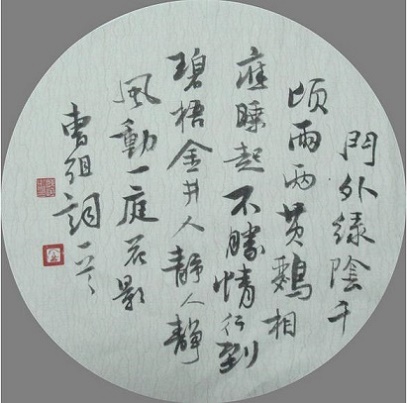 門外綠陰千
頃兩兩黃鸝相
應睡起不勝情行到
碧梧金井人靜人靜
風動一庭花影
曹組詞